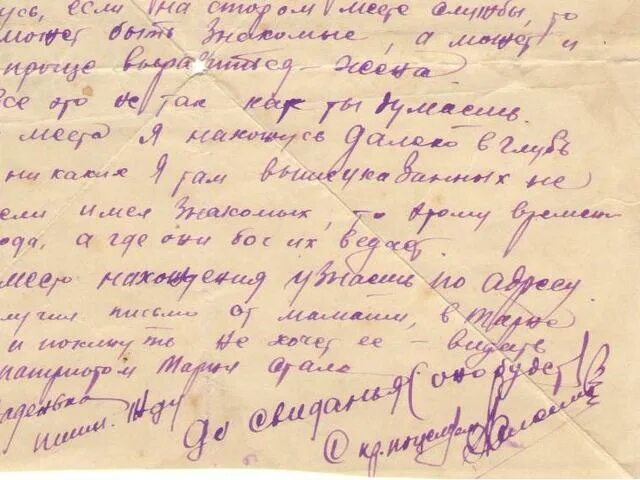 усь, если на втором месте службы, то
может быть знакомые, а может и
проще выразиться – жена
все это не так как ты думаешь.
места я нахожусь далеко в глубь
никаких я там вышеуказанных не
если имел знакомых, то этому времени
года, а где они бог их ведает.
место нахождения узнаешь по адресу
лучил письмо от мамаши, в Марие
и покинуть не хочет ее – видать
патриотом Марии стала
Наденька
пиши. Жду
До свиданья (оно будет)
С кр. поцелуем